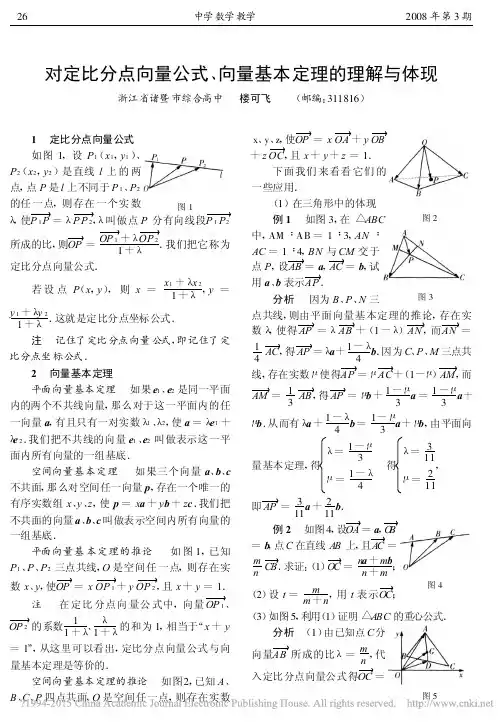 26
中学数学教学
2008年第3期
对定比分点向量公式、向量基本定理的理解与体现
浙江省诸暨市综合高中 楼可飞 (邮编:311816)
1 定比分点向量公式
如图1, 设 P₁(x₁, y₁)、
P₂(x₂, y₂) 是直线 l 上的两
点, 点 P 是 l 上不同于 P₁、P₂
的任一点, 则存在一个实数
P₁ P P₂ l O
图1
λ, 使P₁P = λPP₂, λ叫做点 P 分有向线段P₁P₂
所成的比, 则OP = (OP₁ + λOP₂)/(1+λ). 我们把它称为
定比分点向量公式.
若设点 P(x, y), 则 x = (x₁ + λx₂)/(1+λ), y =
(y₁ + λy₂)/(1+λ). 这就是定比分点坐标公式.
注 记住了定比分点向量公式, 即记住了定
比分点坐标公式.
2 向量基本定理
平面向量基本定理 如果e₁、e₂ 是同一平面
内的两个不共线向量, 那么对于这一平面内的任
一向量 a, 有且只有一对实数 λ₁、λ₂, 使 a = λe₁ +
λe₂. 我们把不共线的向量 e₁、e₂ 叫做表示这一平
面内所有向量的一组基底.
空间向量基本定理 如果三个向量 a、b、c
不共面, 那么对空间任一向量 p, 存在一个唯一的
有序实数组 x、y、z, 使 p = xa + yb + zc. 我们把
不共面的向量 a、b、c 叫做表示空间内所有向量的
一组基底.
平面向量基本定理的推论 如图1, 已知
P₁、P₂、P 三点共线, O 是空间任一点, 则存在实
数 x、y, 使OP = xOP₁ + yOP₂, 且 x + y = 1.
注 在定比分点向量公式中, 向量OP₁、
OP₂ 的系数 1/(1+λ)、λ/(1+λ) 的和为 1, 相当于“x + y
= 1”, 从这里可以看出, 定比分点向量公式与向
量基本定理是等价的.
空间向量基本定理的推论 如图2, 已知 A、
B、C、P 四点共面, O 是空间任一点, 则存在实数
x、y、z, 使OP = xOA + yOB
+ zOC, 且 x + y + z = 1.
下面我们来看看它们的
一些应用.
O A P C B
图2
(1) 在三角形中的体现
例1 如图3, 在 △ABC
中, AM ∶ AB = 1 ∶ 3, AN ∶
AC = 1 ∶ 4, BN 与 CM 交于
点 P, 设AB = a, AC = b, 试
用 a、b 表示AP.
A M N P B C
图3
分析 因为 B、P、N 三
点共线, 则由平面向量基本定理的推论, 存在实
数 λ, 使得AP = λAB + (1-λ)AN, 而AN =
1/4 AC, 得AP = λa + (1-λ)/4 b. 因为 C、P、M 三点共
线, 存在实数 μ 使得AP = μAC + (1-μ)AM, 而
AM = 1/3 AB, 得AP = μb + (1-μ)/3 a = (1-μ)/3 a +
μb. 从而有 λa + (1-λ)/4 b = (1-μ)/3 a + μb, 由平面向
量基本定理, 得{λ = (1-μ)/3, μ = (1-λ)/4 得{λ = 3/11, μ = 2/11,
即AP = 3/11 a + 2/11 b.
例2 如图4, 设OA = a, OB
= b, 点 C 在直线 AB 上, 且AC =
m/n CB. 求证: (1) OC = (na + mb)/(n + m);
A B C O
图4
(2) 设 t = m/(m + n), 用 t 表示OC;
(3) 如图5, 利用(1) 证明 △ABC 的重心公式.
分析 (1) 由已知点 C 分
向量AB 所成的比 λ = m/n, 代
入定比分点向量公式得OC =
y A G B D C O x
图5
?1994-2015 China Academic Journal Electronic Publishing House. All rights reserved. http://www.cnki.net